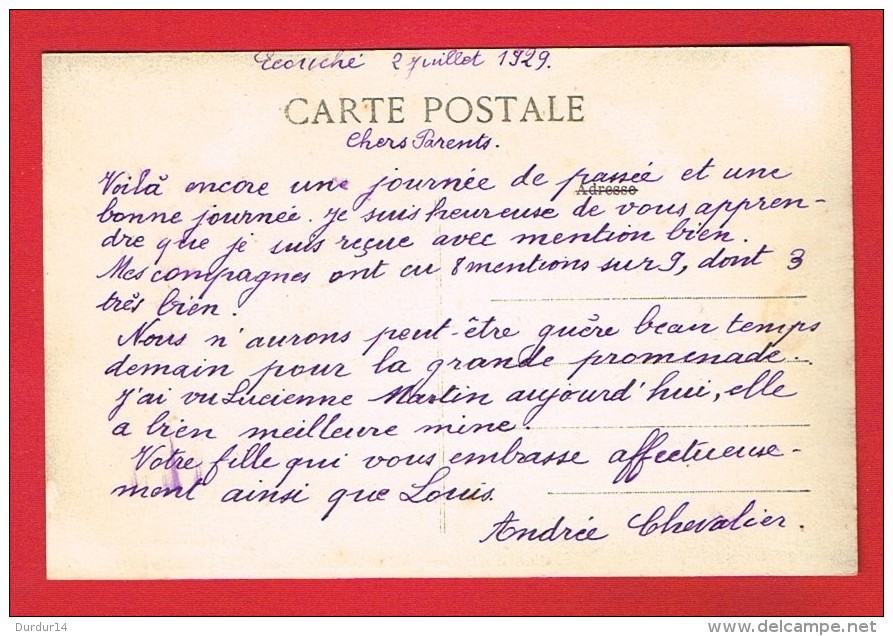 Ecouché 2 Juillet 1929.
CARTE POSTALE
Chers Parents.
Voilà encore une journée de passée et une
Adresse
bonne journée. Je suis heureuse de vous appren-
dre que je suis reçue avec mention bien.
Mes compagnes ont eu 8 mentions sur 9, dont 3
très bien.
Nous n'aurons peut-être guère beau temps
demain pour la grande promenade.
J'ai vu Lucienne Martin aujourd'hui, elle
a bien meilleure mine.
Votre fille qui vous embrasse affectueuse-
ment ainsi que Louis.
Andrée Chevalier.
Durdur14
delcampe.net